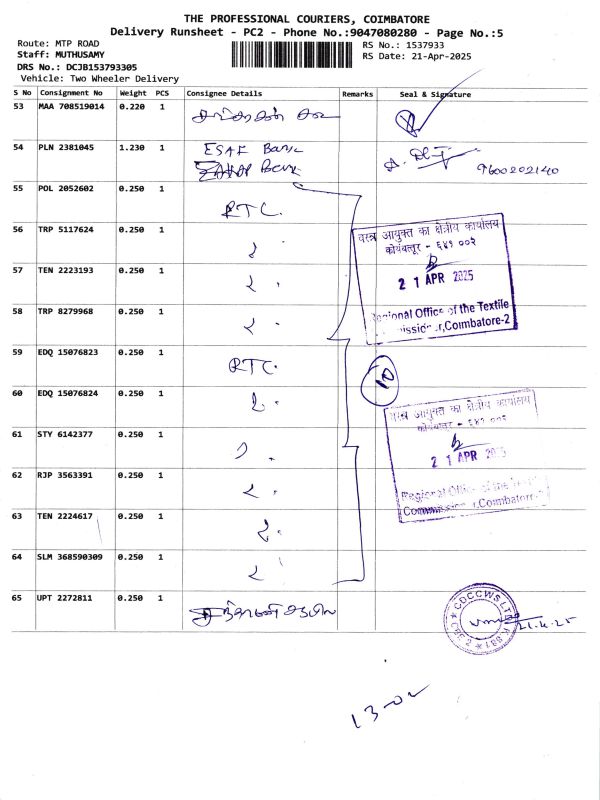 THE PROFESSIONAL COURIERS, COIMBATORE
Delivery Runsheet - PC2 - Phone No.:9047080280 - Page No.:5
Route: MTP ROAD
Staff: MUTHUSAMY
DRS No.: DCJB153793305
Vehicle: Two Wheeler Delivery
RS No.: 1537933
RS Date: 21-Apr-2025
S No Consignment No Weight PCS Consignee Details Remarks Seal & Signature
53 MAA 708519014 0.220 1
54 PLN 2381045 1.230 1 ESAF Bank
Bank
9600202140
55 POL 2052602 0.250 1 RTC.
56 TRP 5117624 0.250 1
57 TEN 2223193 0.250 1
58 TRP 8279968 0.250 1
59 EDQ 15076823 0.250 1 RTC.
60 EDQ 15076824 0.250 1
61 STY 6142377 0.250 1
62 RJP 3563391 0.250 1
63 TEN 2224617 0.250 1
64 SLM 368590309 0.250 1
65 UPT 2272811 0.250 1
वस्त्र आयुक्त का क्षेत्रीय कार्यालय
कोयंबत्तूर - ६४१ ००२
21 APR 2025
Regional Office of the Textile
Commissioner,Coimbatore-2
10
वस्त्र आयुक्त का क्षेत्रीय कार्यालय
कोयंबत्तूर - ६४१ ००२
21 APR 2025
Regional Office of the Textile
Commissioner,Coimbatore-2
CDCCWS LTD
21.4.25
13-02